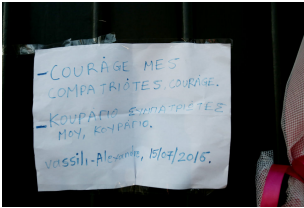 - COURÂGE MES
COMPATRIÔTES, COURÂGE.
- ΚΟΥΡΑΓΙΟ ΣΥΜΠΑΤΡΙΩΤΕΣ
ΜΟΥ, ΚΟΥΡΑΓΙΟ.
Vassili-Alexandre, 15/07/2016.